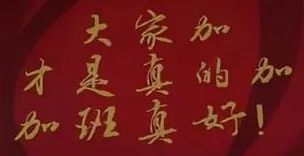 大家加
才是真的加
加班真好！